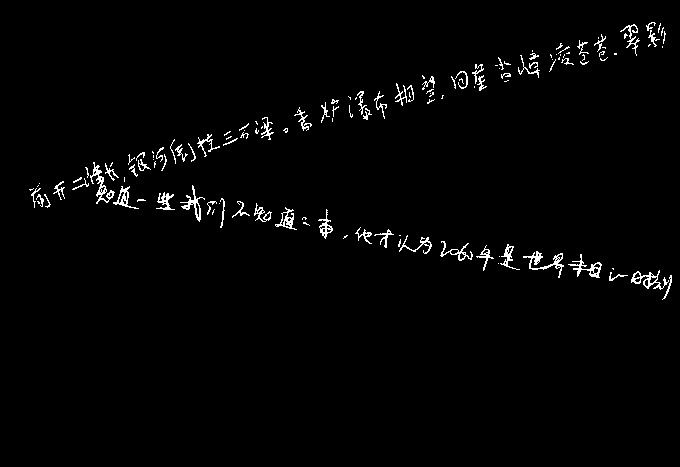 前开二峰长,银河倒挂三石梁。香炉瀑布相望,回崖沓嶂凌苍苍.翠影
知道一些我们不知道的事,他才认为2060年是世界末日的时刻